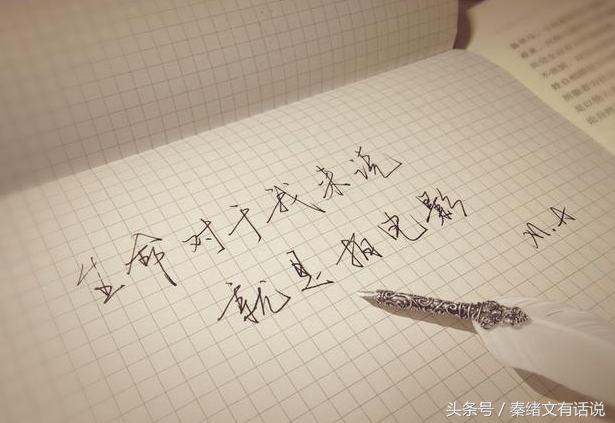 生命对于我来说
就是拍电影
M.A
头条号 / 秦绪文有话说